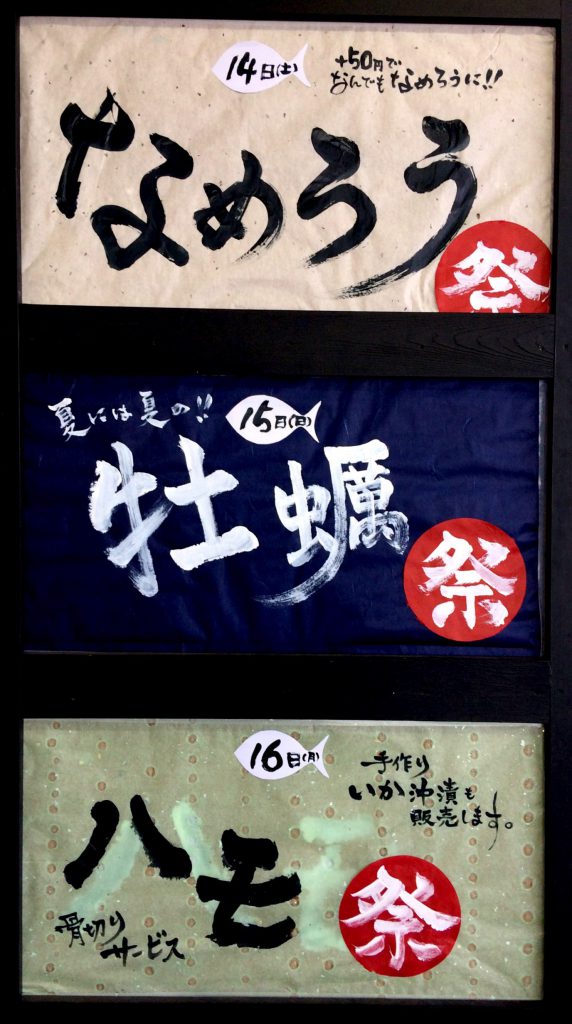 14日(土)
+50円で
なんでもなめろうに!!
なめろう
祭
夏には夏の!!
15日(日)
牡蠣
祭
16日(月)
手作り
いか沖漬も
販売します。
ハモ
祭
骨切り
サービス